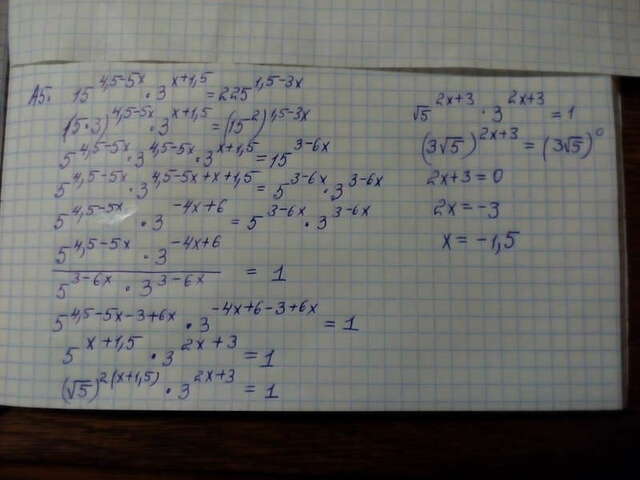 А5. 15^{4,5-5x} · 3^{x+1,5} = 225^{1,5-3x}
(5·3)^{4,5-5x} · 3^{x+1,5} = (15^2)^{1,5-3x}
5^{4,5-5x} · 3^{4,5-5x} · 3^{x+1,5} = 15^{3-6x}
5^{4,5-5x} · 3^{4,5-5x+x+1,5} = 5^{3-6x} · 3^{3-6x}
5^{4,5-5x} · 3^{-4x+6} = 5^{3-6x} · 3^{3-6x}
\frac{5^{4,5-5x} · 3^{-4x+6}}{5^{3-6x} · 3^{3-6x}} = 1
5^{4,5-5x-3+6x} · 3^{-4x+6-3+6x} = 1
5^{x+1,5} · 3^{2x+3} = 1
(√5)^{2(x+1,5)} · 3^{2x+3} = 1
√5^{2x+3} · 3^{2x+3} = 1
(3√5)^{2x+3} = (3√5)^0
2x+3=0
2x=-3
x=-1,5